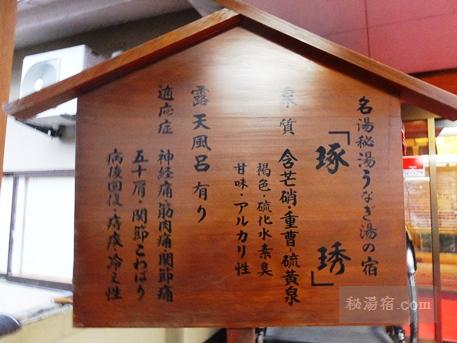 名湯秘湯うなぎ湯の宿
「琢琇」
泉質 含芒硝・重曹-硫黄泉
褐色・硫化水素臭
甘味・アルカリ性
露天風呂有り
適応症 神経痛・筋肉痛・関節痛
五十肩・関節こわばり
病後回復・痔疾・冷え性
秘湯宿.com